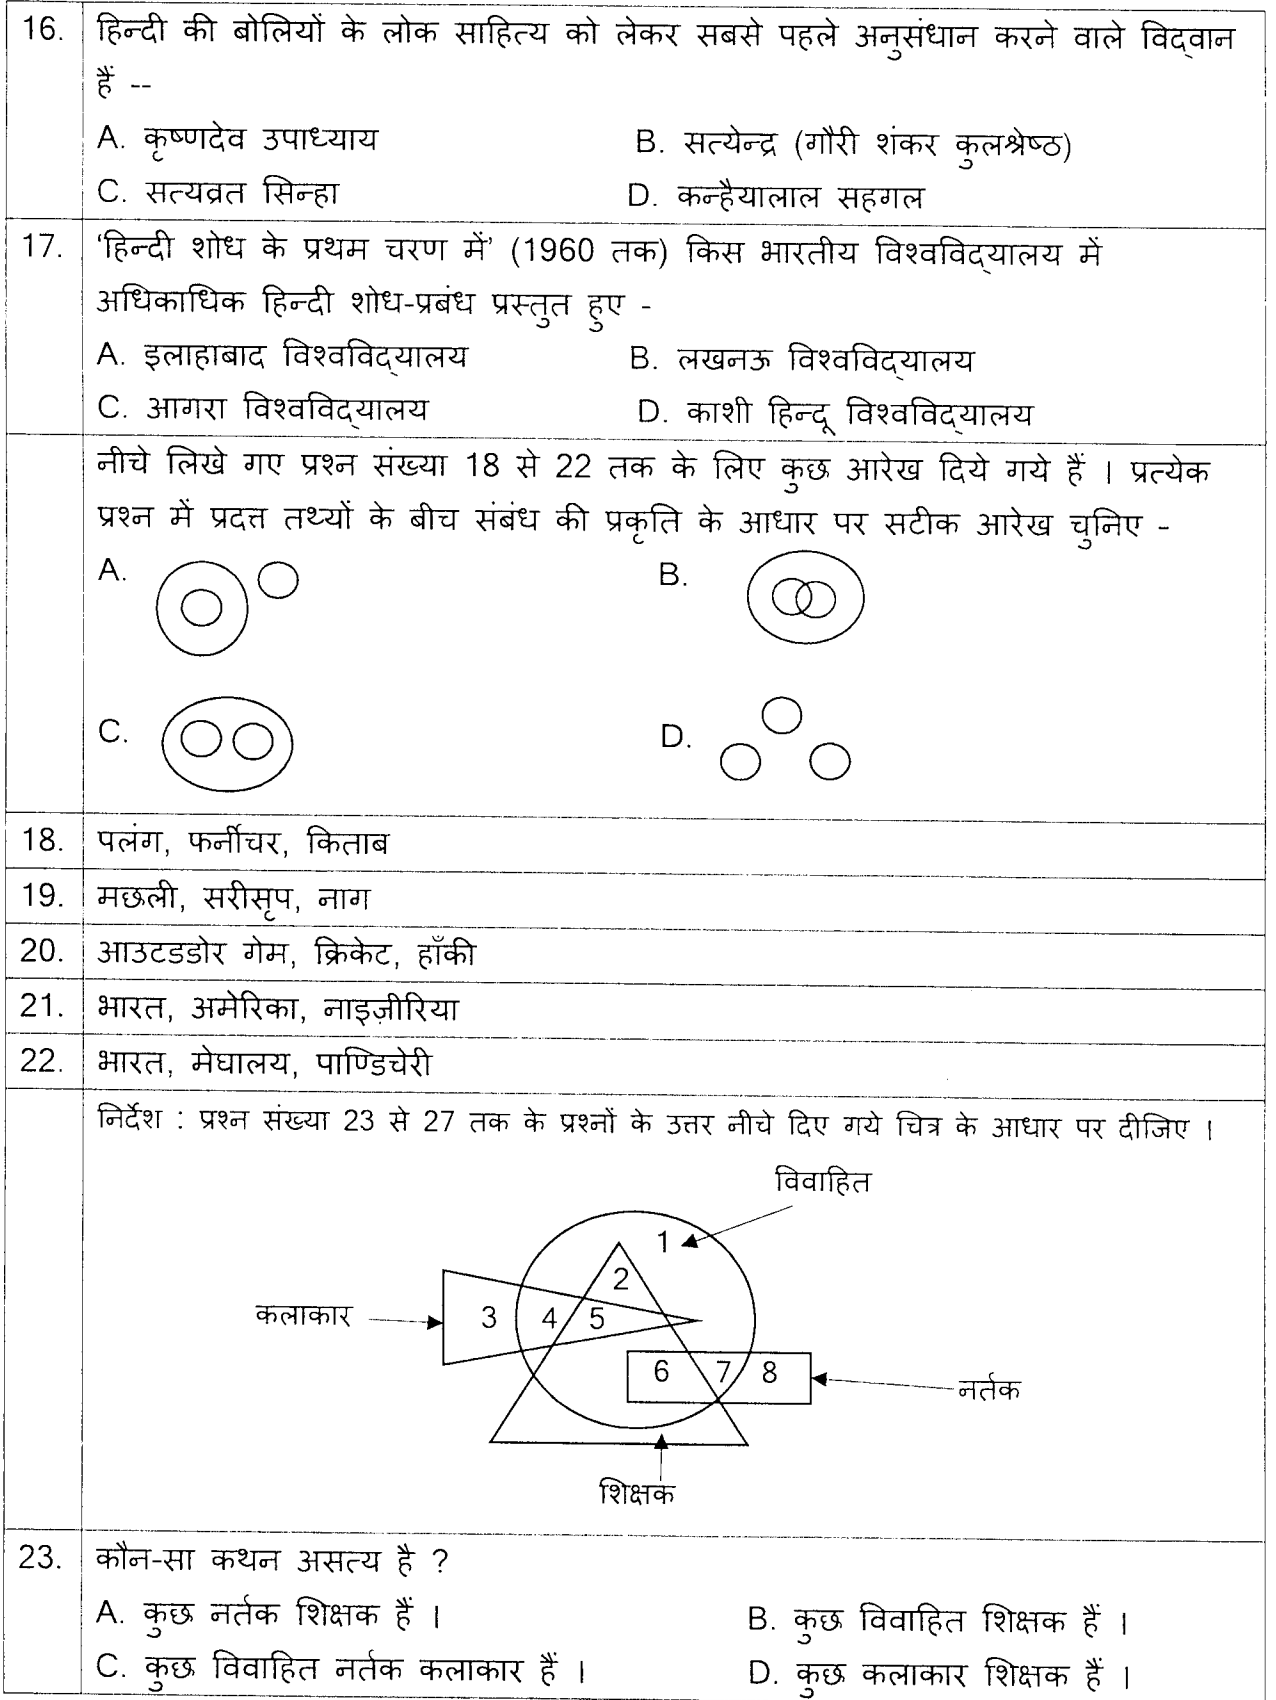 16. हिन्दी की बोलियों के लोक साहित्य को लेकर सबसे पहले अनुसंधान करने वाले विद्वान
हैं --
A. कृष्णदेव उपाध्याय B. सत्येन्द्र (गौरी शंकर कुलश्रेष्ठ)
C. सत्यव्रत सिन्हा D. कन्हैयालाल सहगल
17. ‘हिन्दी शोध के प्रथम चरण में’ (1960 तक) किस भारतीय विश्वविद्यालय में
अधिकाधिक हिन्दी शोध-प्रबंध प्रस्तुत हुए -
A. इलाहाबाद विश्वविद्यालय B. लखनऊ विश्वविद्यालय
C. आगरा विश्वविद्यालय D. काशी हिन्दू विश्वविद्यालय
नीचे लिखे गए प्रश्न संख्या 18 से 22 तक के लिए कुछ आरेख दिये गये हैं । प्रत्येक
प्रश्न में प्रदत्त तथ्यों के बीच संबंध की प्रकृति के आधार पर सटीक आरेख चुनिए -
A. B.
C. D.
18. पलंग, फर्नीचर, किताब
19. मछली, सरीसृप, नाग
20. आउटडडोर गेम, क्रिकेट, हाँकी
21. भारत, अमेरिका, नाइज़ीरिया
22. भारत, मेघालय, पाण्डिचेरी
निर्देश : प्रश्न संख्या 23 से 27 तक के प्रश्नों के उत्तर नीचे दिए गये चित्र के आधार पर दीजिए ।
विवाहित
1
2
कलाकार 3 4 5
6 7 8 नर्तक
शिक्षक
23. कौन-सा कथन असत्य है ?
A. कुछ नर्तक शिक्षक हैं । B. कुछ विवाहित शिक्षक हैं ।
C. कुछ विवाहित नर्तक कलाकार हैं । D. कुछ कलाकार शिक्षक हैं ।